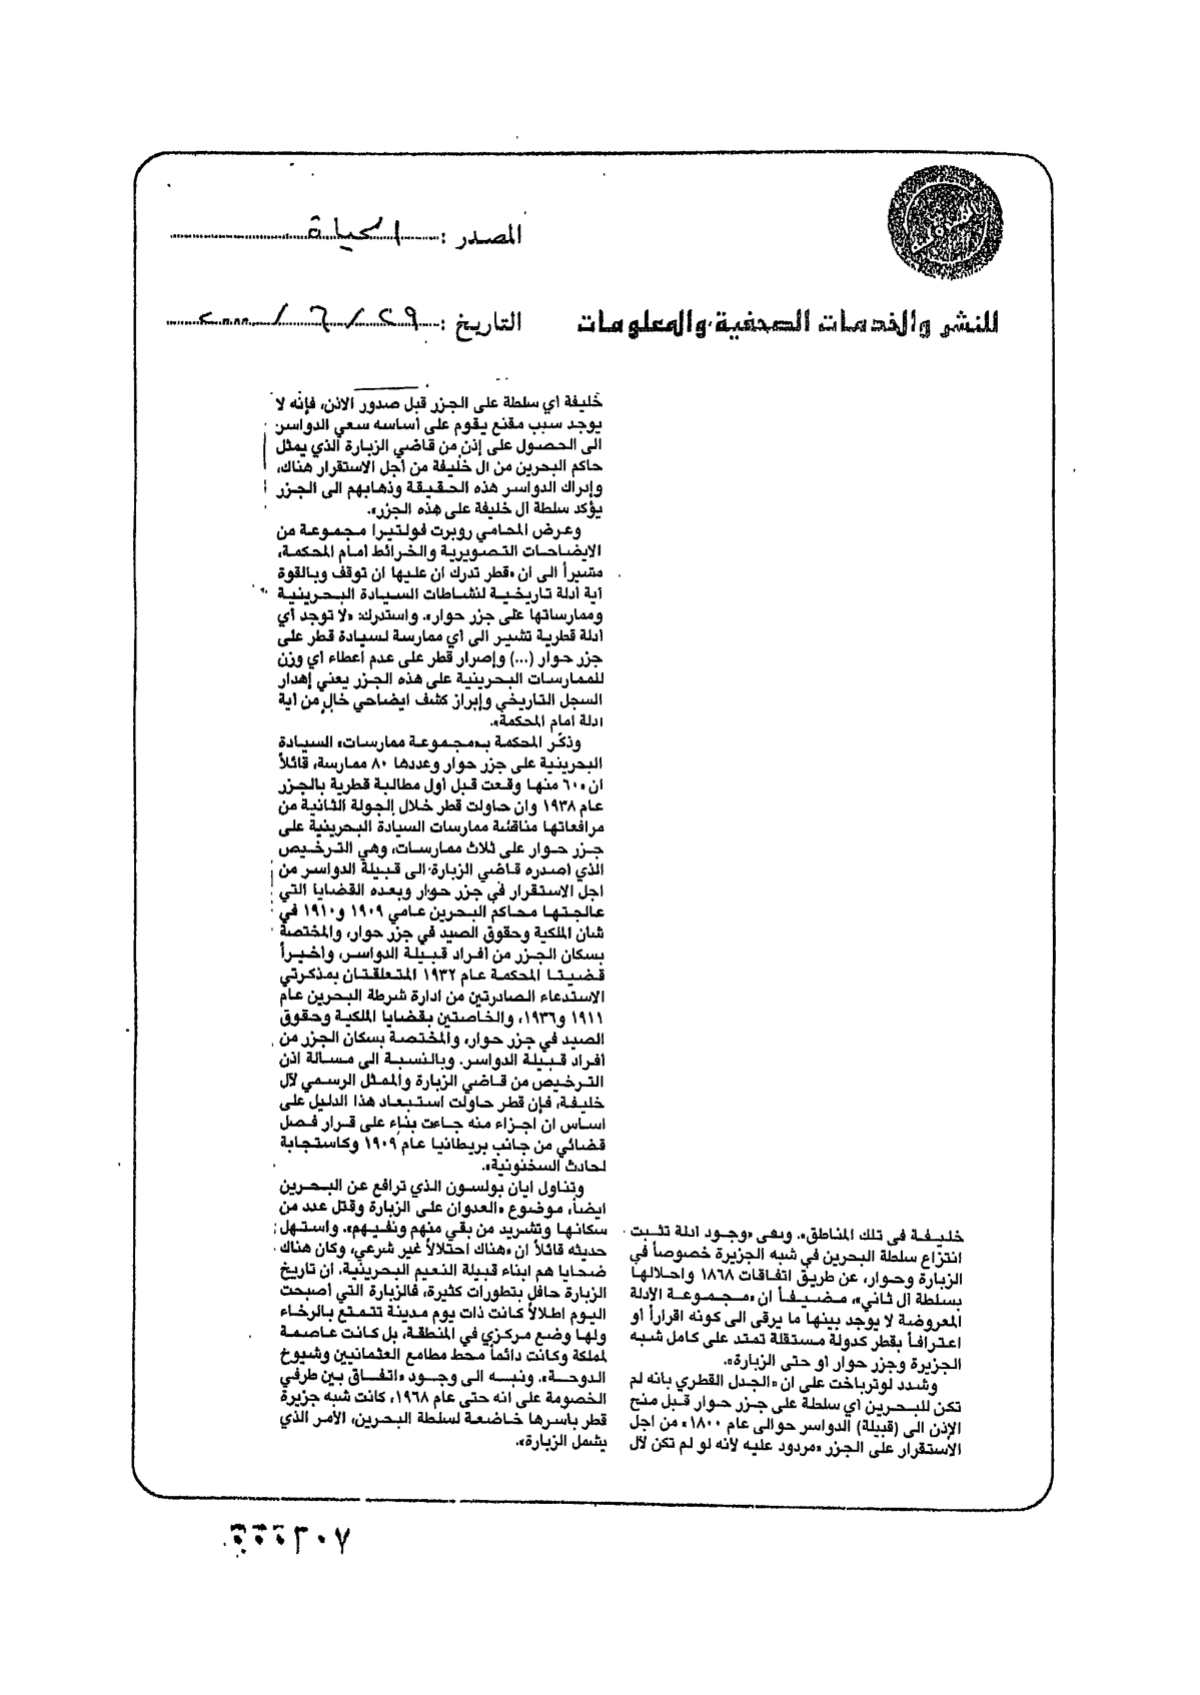 المصدر : الحياة
للنشر والخدمات الصحفية والمعلومات
التاريخ : ٢٩ / ٦ / ٢٠٠٠
خليفة في تلك المناطق». ونفى «وجود ادلة تثبت
انتزاع سلطة البحرين في شبه الجزيرة خصوصاً في
الزبارة وحوار، عن طريق اتفاقات ١٨٦٨ واحلالها
بسلطة آل ثاني»، مضيفاً ان «مجموعة الادلة
المعروضة لا يوجد بينها ما يرقى الى كونه اقراراً او
اعترافاً بقطر كدولة مستقلة تمتد على كامل شبه
الجزيرة وجزر حوار او حتى الزبارة».
وشدد لوترباخت على ان «الجدل القطري بانه لم
تكن للبحرين أي سلطة على جزر حوار قبل منح
الإذن الى (قبيلة) الدواسر حوالى عام ١٨٠٠» من اجل
الاستقرار على الجزر «مردود عليه لانه لو لم تكن لآل
خليفة أي سلطة على الجزر قبل صدور الاذن، فإنه لا
يوجد سبب مقنع يقوم على أساسه سعي الدواسر
الى الحصول على إذن من قاضي الزبارة الذي يمثل
حاكم البحرين من ال خليفة من أجل الاستقرار هناك،
وإدراك الدواسر هذه الحقيقة وذهابهم الى الجزر
يؤكد سلطة آل خليفة على هذه الجزر».
وعرض المحامي روبرت فولتيرا مجموعة من
الايضاحات التصويرية والخرائط امام المحكمة،
مشيراً الى ان «قطر تدرك ان عليها ان توقف وبالقوة
أية أدلة تاريخية لنشاطات السيادة البحرينية
وممارساتها على جزر حوار». واستدرك: «لا توجد أي
ادلة قطرية تشير الى أي ممارسة لسيادة قطر على
جزر حوار (...) وإصرار قطر على عدم اعطاء أي وزن
للممارسات البحرينية على هذه الجزر يعني إهدار
السجل التاريخي وإبراز كشف ايضاحي خالٍ من أية
ادلة امام المحكمة».
وذكّر المحكمة بـ«مجموعة ممارسات» السيادة
البحرينية على جزر حوار وعددها ٨٠ ممارسة، قائلاً
ان «٦٠ منها وقعت قبل أول مطالبة قطرية بالجزر
عام ١٩٣٨ وان حاولت قطر خلال الجولة الثانية من
مرافعاتها مناقشة ممارسات السيادة البحرينية على
جزر حوار على ثلاث ممارسات، وهي الترخيص
الذي أصدره قاضي الزبارة الى قبيلة الدواسر من
اجل الاستقرار في جزر حوار وبعده القضايا التي
عالجتها محاكم البحرين عامي ١٩٠٩ و١٩١٠ في
شان الملكية وحقوق الصيد في جزر حوار، والمختصة
بسكان الجزر من أفراد قبيلة الدواسر، وأخيراً
قضيتا المحكمة عام ١٩٣٢ المتعلقتان بمذكرتي
الاستدعاء الصادرتين من ادارة شرطة البحرين عام
١٩١١ و١٩٣٦، والخاصتين بقضايا الملكية وحقوق
الصيد في جزر حوار، والمختصة بسكان الجزر من
أفراد قبيلة الدواسر. وبالنسبة الى مسالة اذن
الترخيص من قاضي الزبارة والممثل الرسمي لآل
خليفة، فإن قطر حاولت استبعاد هذا الدليل على
اساس ان اجزاء منه جاءت بناء على قرار فصل
قضائي من جانب بريطانيا عام ١٩٠٩ وكاستجابة
لحادث السخنونية».
وتناول ايان بولسون الذي ترافع عن البحرين
ايضاً، موضوع «العدوان على الزبارة وقتل عدد من
سكانها وتشريد من بقي منهم ونفيهم». واستهل
حديثه قائلاً ان «هناك احتلالاً غير شرعي، وكان هناك
ضحايا هم ابناء قبيلة النعيم البحرينية. ان تاريخ
الزبارة حافل بتطورات كثيرة، فالزبارة التي أصبحت
اليوم اطلالاً كانت ذات يوم مدينة تتمتع بالرخاء
ولها وضع مركزي في المنطقة، بل كانت عاصمة
لمملكة وكانت دائماً محط مطامع العثمانيين وشيوخ
الدوحة». ونبه الى وجود «اتفاق بين طرفي
الخصومة على انه حتى عام ١٩٦٨، كانت شبه جزيرة
قطر بأسرها خاضعة لسلطة البحرين، الأمر الذي
يشمل الزبارة».